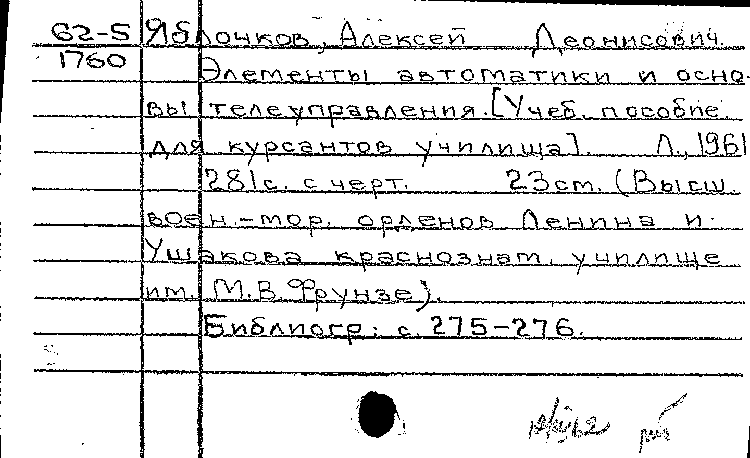 62-5 Яблочков, Алексей Деонисович.
1760 Элементы автоматики и осно-
вы телеуправления. [Учеб. пособие
для курсантов училища]. Л., 1961
281с. с черт. 23cm. (Высш.
воен.-мор. орденов Ленина и
Ушакова краснознам. училище
им. М.В. Фрунзе).
Библиогр: с. 275-276.